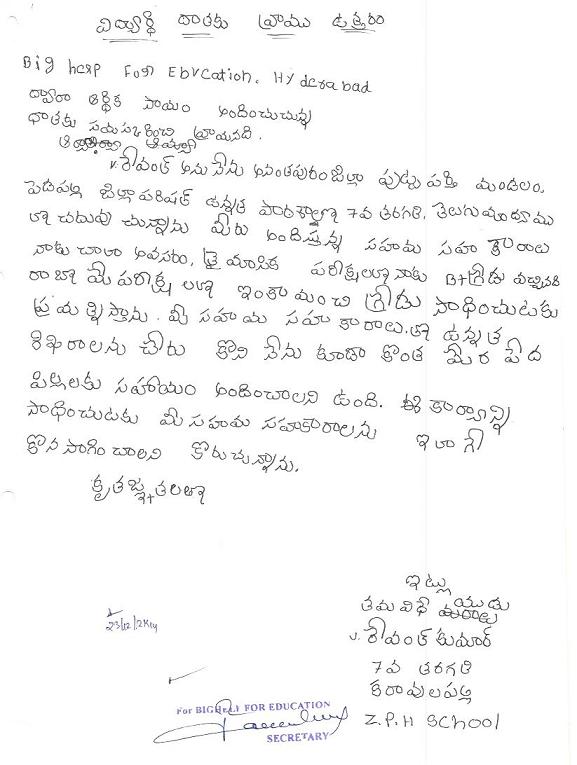 విద్యార్థి దాతకు వ్రాయు ఉత్తరం
Big help For Education, Hyderabad
ద్వారా ఆర్థిక సాయం అందించుచున్న
దాతకు నమస్కరించి వ్రాయునది.
V. శ్రీవంత్ అను నేను అనంతపురం జిల్లా పుట్టపర్తి మండలం,
పెడపల్లి జిల్లా పరిషత్ ఉన్నత పాఠశాల్లో 7వ తరగతి, తెలుగు మాద్యము
లో చదువు చున్నాను మీరు అందిస్తున్న సహయ సహకారాలు
నాకు చాలా అవసరం, త్రైమాసిక పరీక్షలలో నాకు B+ గ్రేడు వచ్చినది
రాబోయే పరీక్షలలో ఇంకా మంచి గ్రేడు సాధించుటకు
ప్రయత్నిస్తాను. మీ సహయ సహకారాలు.తో ఉన్నత
శిఖరాలను చేరు కొని నేను కూడా కొంత మేర పేద
పిల్లలకు సహాయం అందించాలని ఉంది. ఈ కార్యాన్ని
సాధించుటకు మీ సహయ సహకారాలను ఇలాగే
కొనసాగించాలని కోరుచున్నాను.
కృతజ్ఞతలతో
ఇట్లు
తమ విధేయుడు
V. శ్రీవంత్ కుమార్
7వ తరగతి
కరావులపల్లి
Z.P.H SCHOOL
23/12/2K14
For BIGHELP FOR EDUCATION
SECRETARY